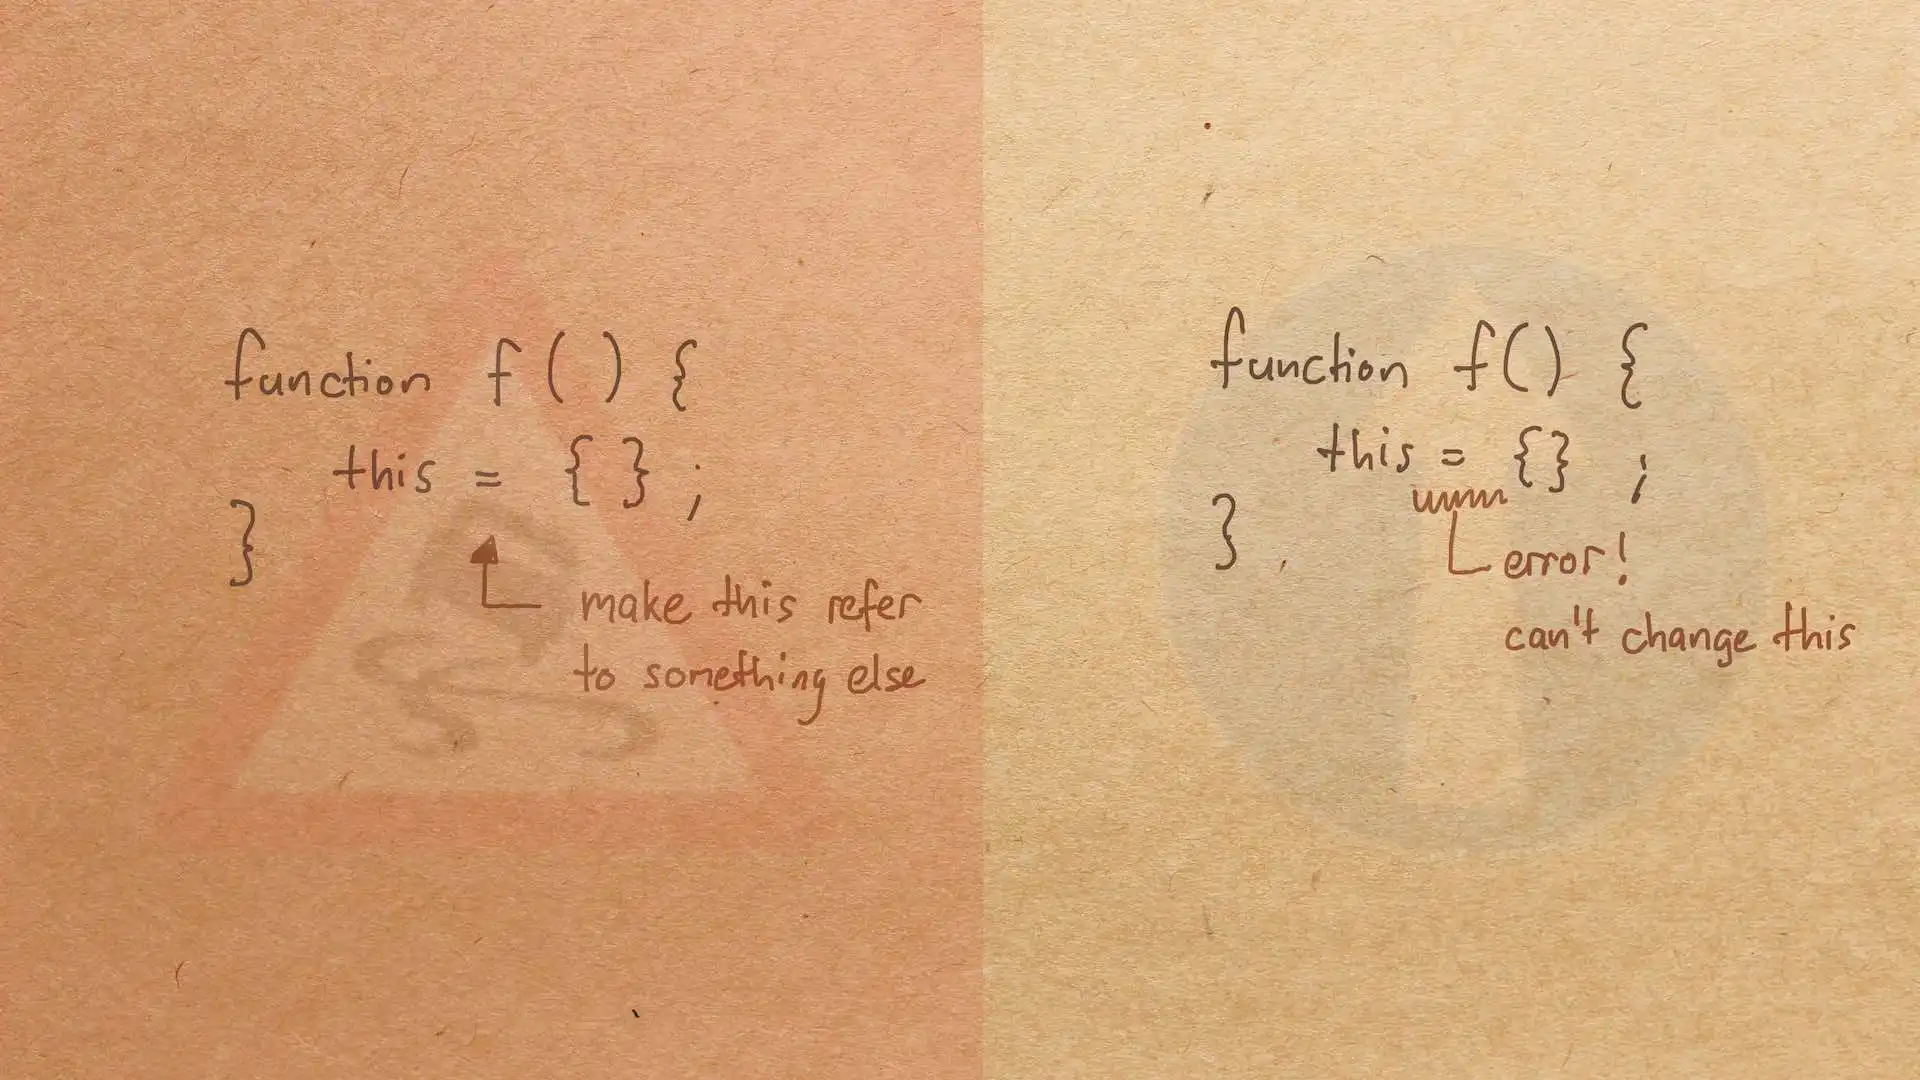 function f() {
this = {};
}
make this refer
to something else
function f() {
this = {} ;
}
error!
can't change this